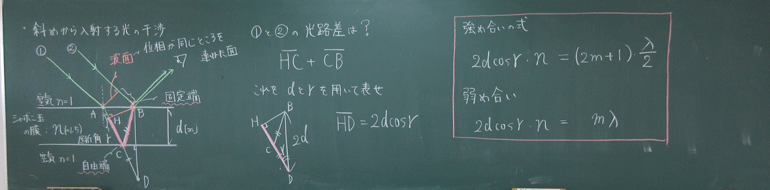 ・斜めから入射する光の干渉
① ②
波面
位相が同じところを
連ねた面
空気 n=1
固定端
A
B
H
シャボン玉
の膜:n(=1.5)
屈折角 r
d[m]
C
空気 n=1
自由端
D
①と②の光路差は?
HC + CB
これをdとrを用いて表せ
B
H
2d
C
r
D
HD = 2dcosr
強め合いの式
2dcosr・n = (2m+1)・λ/2
弱め合い
2dcosr・n = mλ